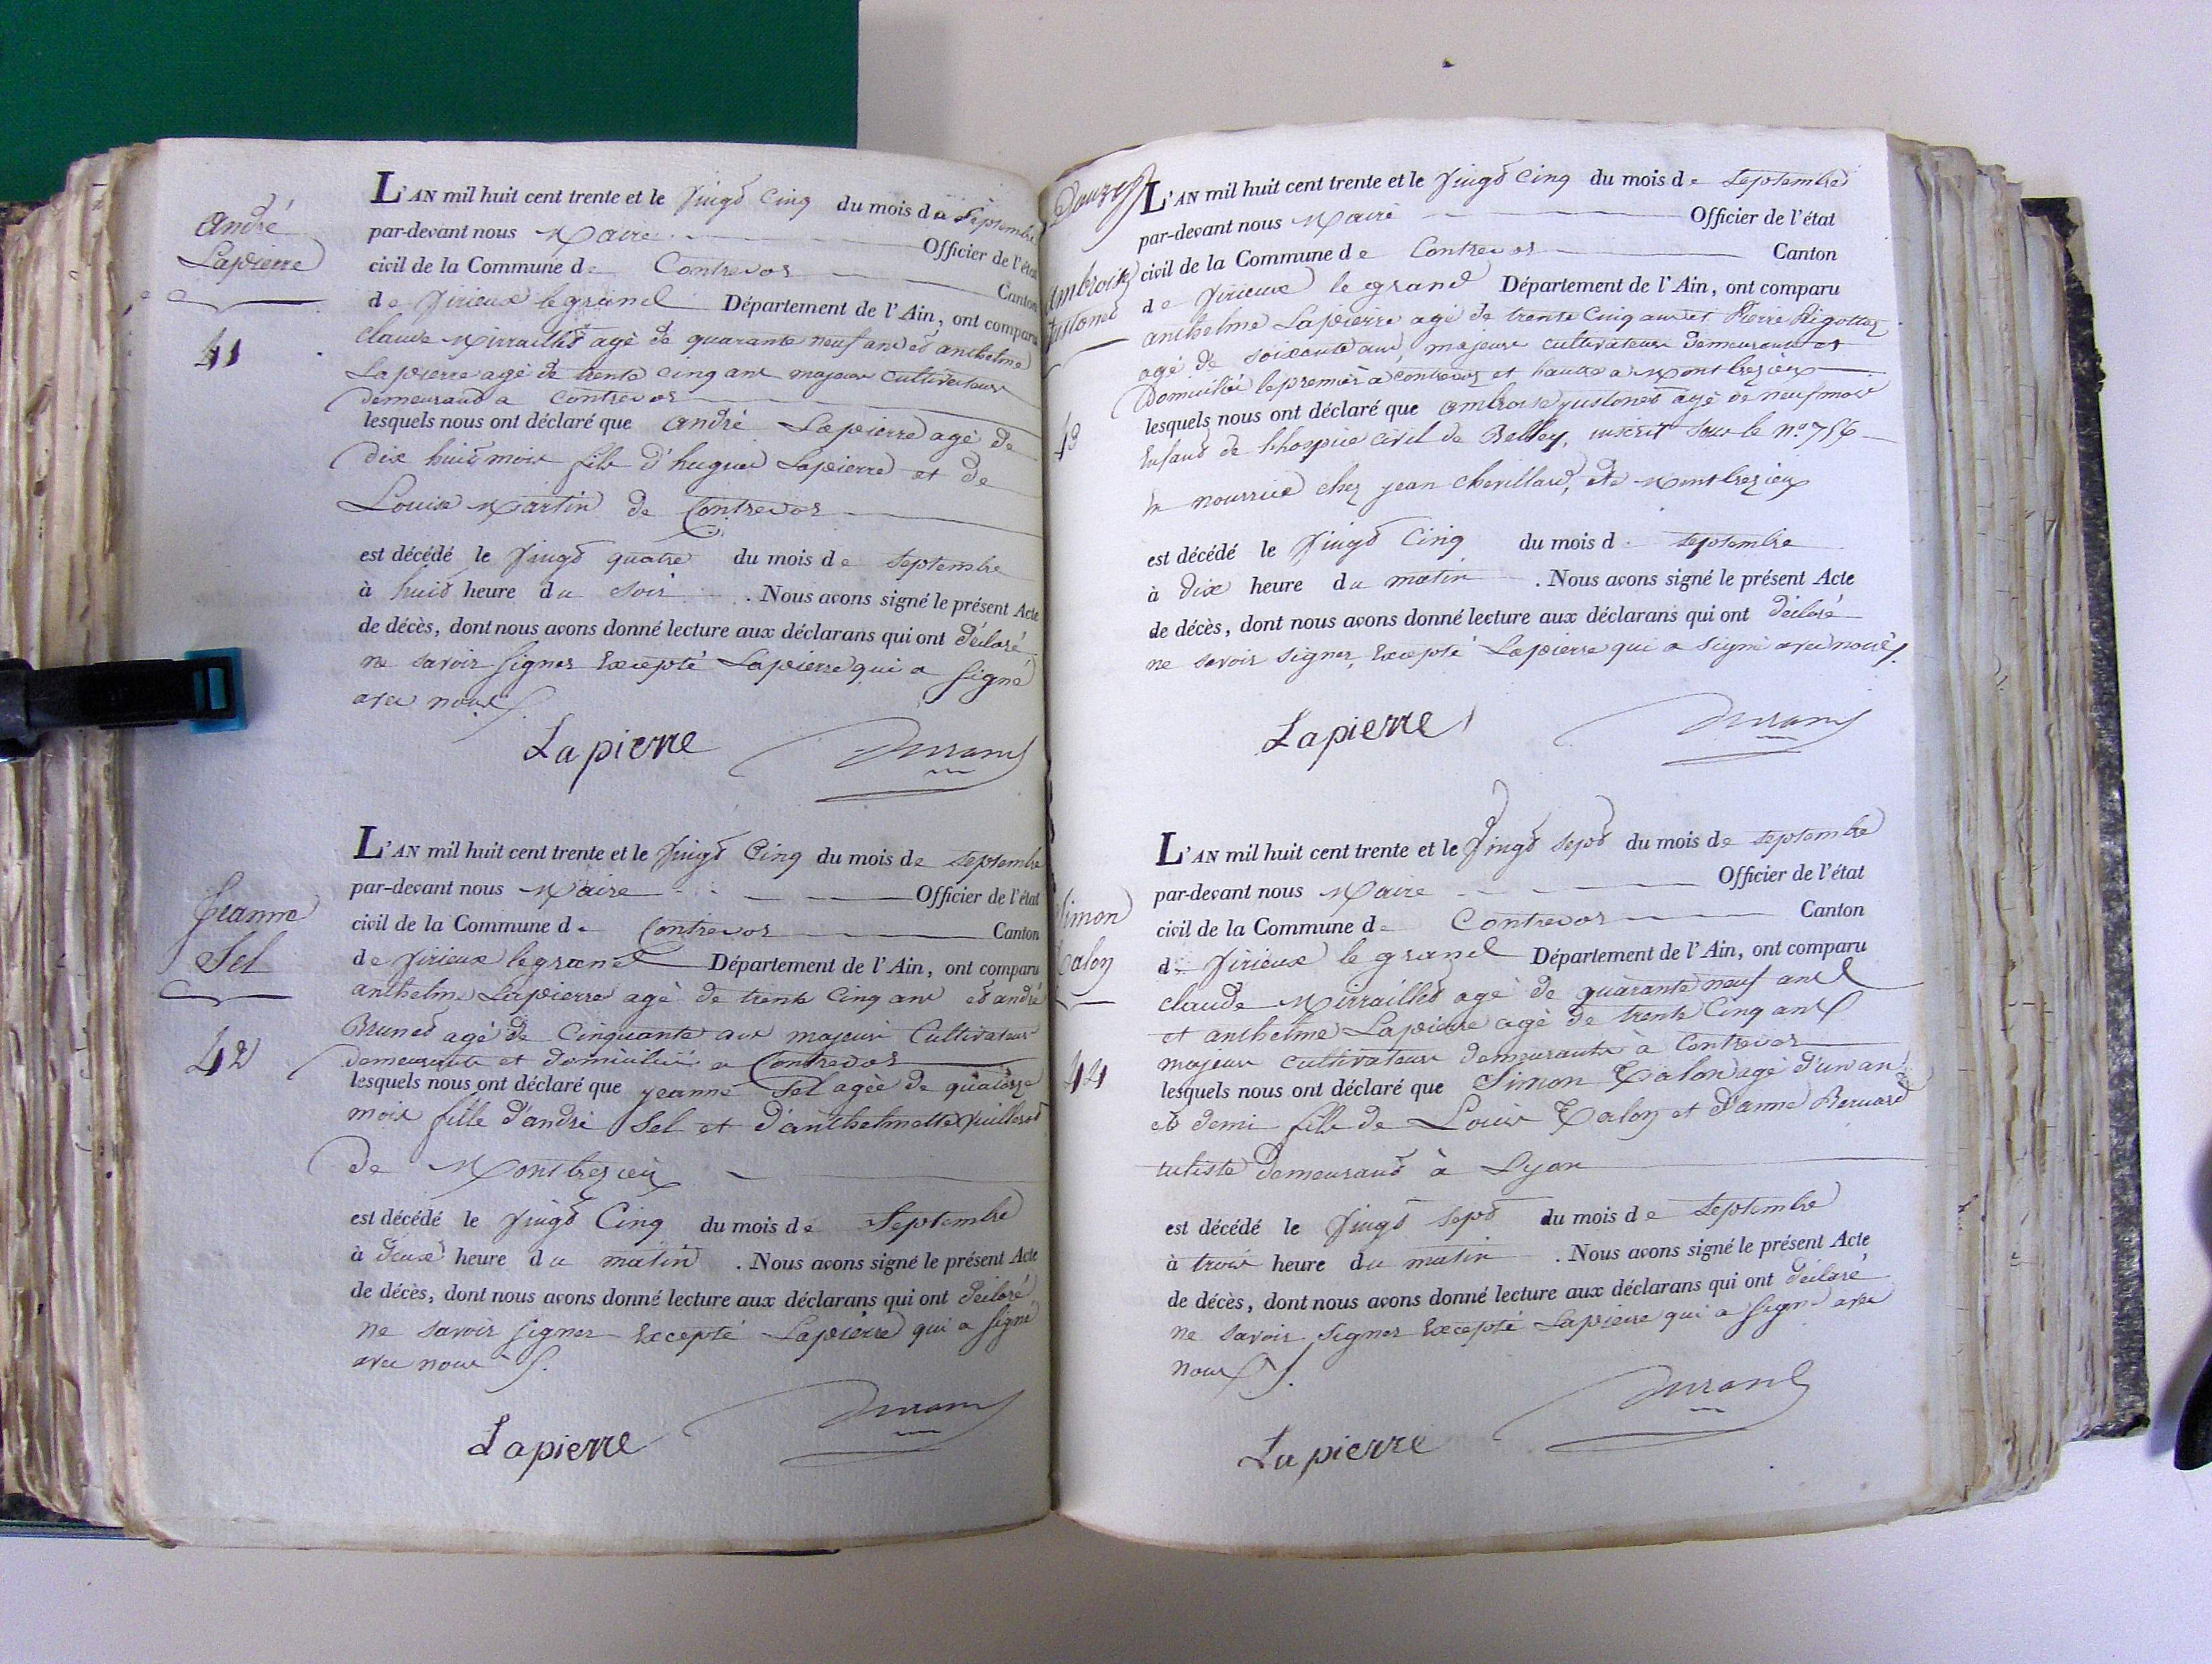 André
Lapierre
41
L'AN mil huit cent trente et le vingt cinq du mois de Septembre
par-devant nous Maire Officier de l'état
civil de la Commune de Contrevoz Canton
de Virieux le grand Département de l'Ain, ont comparu
claude Mirraillet agé de quarante neuf ans et anthelme
Lapierre agé de trente cinq ans majeur cultivateurs
demeurant a Contrevoz
lesquels nous ont déclaré que andré Lapierre agé de
dix huit mois fils d'hugues Lapierre et de
Louise Martin de Contrevoz
est décédé le vingt quatre du mois de Septembre
à huit heure du soir . Nous avons signé le présent Acte
de décès, dont nous avons donné lecture aux déclarans qui ont déclaré
ne savoir signer Excepté Lapierre qui a signé
avec nous
Lapierre Durand
Jeanne
Sel
42
L'AN mil huit cent trente et le vingt Cinq du mois de Septembre
par-devant nous Maire Officier de l'état
civil de la Commune de Contrevoz Canton
de Virieux le grand Département de l'Ain, ont comparu
anthelme Lapierre agé de trente cinq ans et andré
Brunet agé de Cinquante ans majeur Cultivateurs
demeurants et domiciliés a Contrevoz
lesquels nous ont déclaré que jeanne Sel agée de quatorze
mois fille d'andré Sel et d'anthelmette Vuilleret
de Montbrezieu
est décédé le vingt Cinq du mois de Septembre
à deux heure du matin . Nous avons signé le présent Acte
de décès, dont nous avons donné lecture aux déclarans qui ont déclaré
ne savoir signer Excepté Lapierre qui a signé
avec nous
Lapierre Durand
Douze
ambroise
justonet
43
L'AN mil huit cent trente et le vingt cinq du mois de Septembre
par-devant nous Maire Officier de l'état
civil de la Commune de Contrevoz Canton
de Virieux le grand Département de l'Ain, ont comparu
anthelme Lapierre agé de trente cinq ans et Pierre Rigottier
agé de soixante ans, majeurs cultivateurs demeurants et
Domicilié le premier a contrevoz et l'autre a Montbrezieu
lesquels nous ont déclaré que ambroise justonet agé de neuf mois
Enfant de l'hospice civil de Belley, inscrit sous le n.º 756
en nourrice chez jean chevillard, de Montbrezieu
est décédé le vingt Cinq du mois d septembre
à dix heure du matin . Nous avons signé le présent Acte
de décès, dont nous avons donné lecture aux déclarans qui ont déclaré
ne savoir signer, Excepté Lapierre qui a signé avec nous
Lapierre Durand
Simon
Talon
44
L'AN mil huit cent trente et le vingt sept du mois de septembre
par-devant nous Maire Officier de l'état
civil de la Commune de Contrevoz Canton
de Virieux le grand Département de l'Ain, ont comparu
claude Mirraillet agé de quarante neuf ans
et anthelme Lapierre agé de trente Cinq ans
majeurs cultivateurs demeurants à Contrevoz
lesquels nous ont déclaré que Simon Talon agé d'un an
et demi fils de Louis Talon et d'anne Bernard
tuliste demeurant à Lyon
est décédé le vingt sept du mois de septembre
à trois heure du matin . Nous avons signé le présent Acte
de décès, dont nous avons donné lecture aux déclarans qui ont déclaré
ne savoir signer Excepté Lapierre qui a signé avec
nous
Lapierre Durand